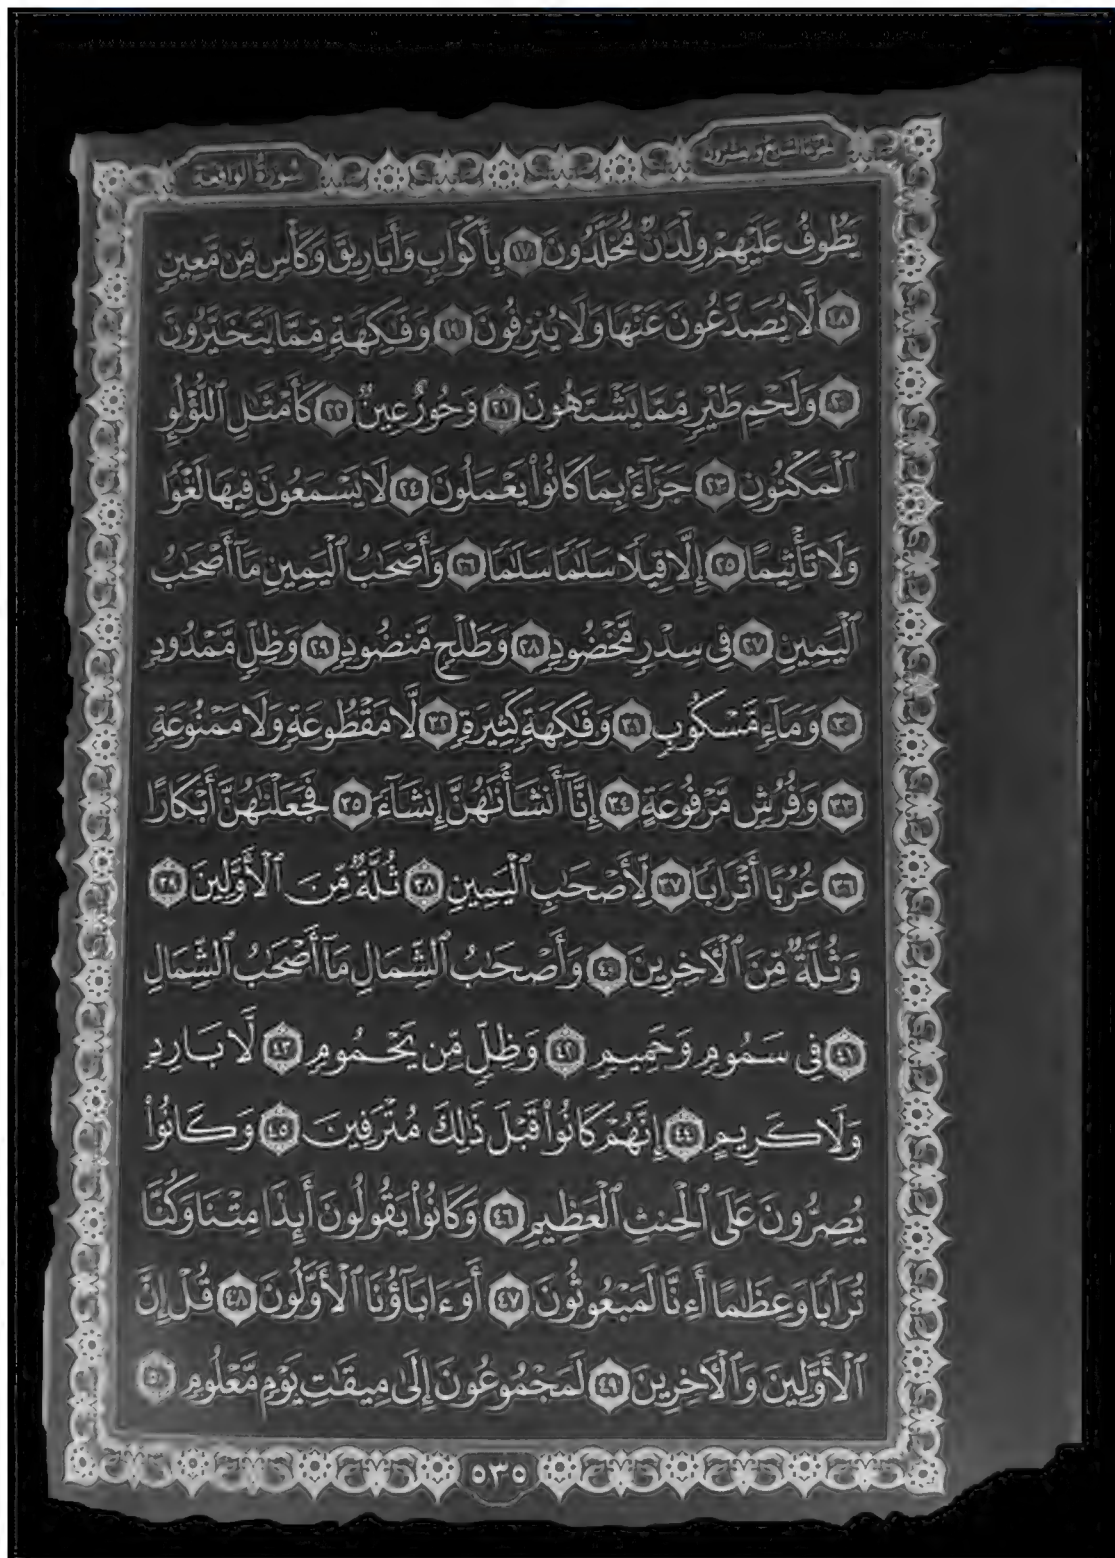 الجزء السابع والعشرون
سُورَةُ الوَاقِعَةِ
يَطُوفُ عَلَيْهِمْ وِلْدَٰنٌ مُّخَلَّدُونَ ١٧ بِأَكْوَابٍ وَأَبَارِيقَ وَكَأْسٍ مِّن مَّعِينٍ
١٨ لَّا يُصَدَّعُونَ عَنْهَا وَلَا يُنزِفُونَ ١٩ وَفَٰكِهَةٍ مِّمَّا يَتَخَيَّرُونَ
٢٠ وَلَحْمِ طَيْرٍ مِّمَّا يَشْتَهُونَ ٢١ وَحُورٌ عِينٌ ٢٢ كَأَمْثَٰلِ ٱللُّؤْلُؤِ
ٱلْمَكْنُونِ ٢٣ جَزَآءًۢ بِمَا كَانُوا۟ يَعْمَلُونَ ٢٤ لَا يَسْمَعُونَ فِيهَا لَغْوًا
وَلَا تَأْثِيمًا ٢٥ إِلَّا قِيلًا سَلَٰمًا سَلَٰمًا ٢٦ وَأَصْحَٰبُ ٱلْيَمِينِ مَآ أَصْحَٰبُ
ٱلْيَمِينِ ٢٧ فِى سِدْرٍ مَّخْضُودٍ ٢٨ وَطَلْحٍ مَّنضُودٍ ٢٩ وَظِلٍّ مَّمْدُودٍ
٣٠ وَمَآءٍ مَّسْكُوبٍ ٣١ وَفَٰكِهَةٍ كَثِيرَةٍ ٣٢ لَّا مَقْطُوعَةٍ وَلَا مَمْنُوعَةٍ
٣٣ وَفُرُشٍ مَّرْفُوعَةٍ ٣٤ إِنَّآ أَنشَأْنَٰهُنَّ إِنشَآءً ٣٥ فَجَعَلْنَٰهُنَّ أَبْكَارًا
٣٦ عُرُبًا أَتْرَابًا ٣٧ لِّأَصْحَٰبِ ٱلْيَمِينِ ٣٨ ثُلَّةٌ مِّنَ ٱلْأَوَّلِينَ ٣٩
وَثُلَّةٌ مِّنَ ٱلْـَٔاخِرِينَ ٤٠ وَأَصْحَٰبُ ٱلشِّمَالِ مَآ أَصْحَٰبُ ٱلشِّمَالِ
٤١ فِى سَمُومٍ وَحَمِيمٍ ٤٢ وَظِلٍّ مِّن يَحْمُومٍ ٤٣ لَّا بَارِدٍ
وَلَا كَرِيمٍ ٤٤ إِنَّهُمْ كَانُوا۟ قَبْلَ ذَٰلِكَ مُتْرَفِينَ ٤٥ وَكَانُوا۟
يُصِرُّونَ عَلَى ٱلْحِنثِ ٱلْعَظِيمِ ٤٦ وَكَانُوا۟ يَقُولُونَ أَئِذَا مِتْنَا وَكُنَّا
تُرَابًا وَعِظَٰمًا أَءِنَّا لَمَبْعُوثُونَ ٤٧ أَوَءَابَآؤُنَا ٱلْأَوَّلُونَ ٤٨ قُلْ إِنَّ
ٱلْأَوَّلِينَ وَٱلْـَٔاخِرِينَ ٤٩ لَمَجْمُوعُونَ إِلَىٰ مِيقَٰتِ يَوْمٍ مَّعْلُومٍ ٥٠
٥٣٥